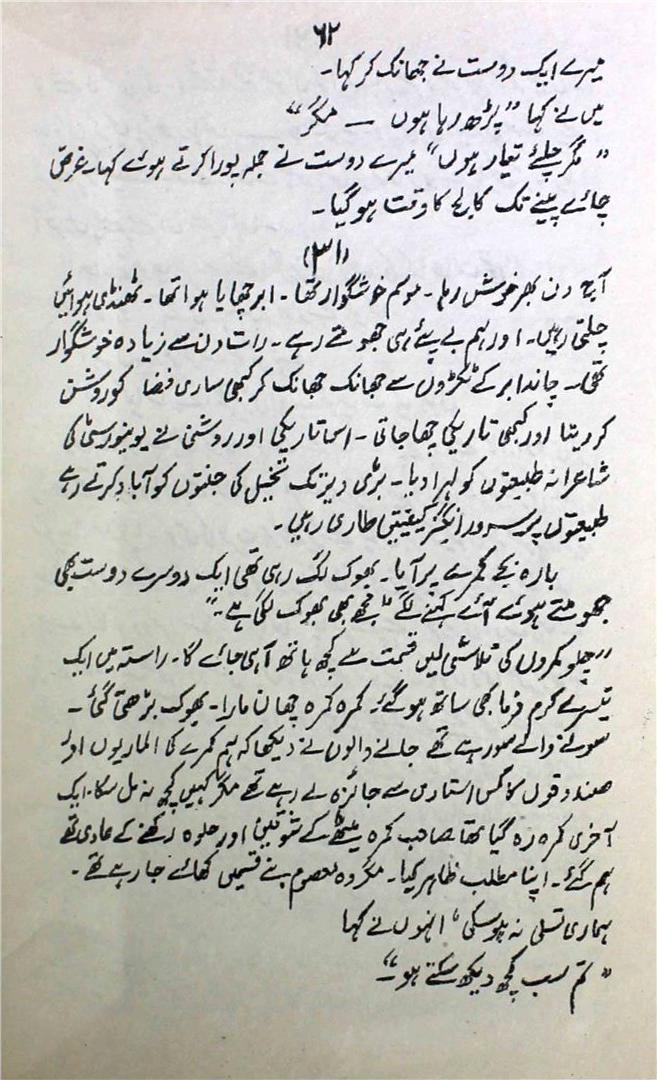 ۶۲
میرے ایک دوست نے جھانک کر کہا۔
میں نے کہا "پڑھ رہا ہوں — مگر"
"مگر چلئے تیار ہوں" میرے دوست نے جملہ پورا کرتے ہوئے کہا۔ غرض
چائے پینے تک کالج کا وقت ہو گیا۔
(۳۱)
آج دن بھر خوش رہا۔ موسم خوشگوار تھا۔ ابر چھایا ہوا تھا۔ ٹھنڈی ہوائیں
چلتی رہیں۔ اور ہم بے پئے ہی جھومتے رہے۔ رات دن سے زیادہ خوشگوار
تھی۔ چاند ابر کے ٹکڑوں سے جھانک جھانک کر کبھی ساری فضا کو روشن
کر دیتا اور کبھی تاریکی چھا جاتی۔ اس تاریکی اور روشنی نے یونیورسٹی کی
شاعرانہ طبیعتوں کو لہرا دیا۔ بڑی دیر تک تخیل کی جنتوں کو آباد کرتے رہے
طبیعتوں پر سرور انگیز کیفیتیں طاری رہیں۔
بارہ بجے کمرے پر آیا۔ بھوک لگ رہی تھی ایک دوسرے دوست بھی
جھومتے ہوئے آئے کہنے لگے "مجھے بھی بھوک لگی ہے۔"
"چلو کمروں کی تلاشی لیں قسمت سے کچھ ہاتھ آ ہی جائے گا۔ راستہ میں ایک
تیسرے کرم فرما بھی ساتھ ہو گئے۔ کمرہ کمرہ چھان مارا۔ بھوک بڑھتی گئی۔
سونے والے سو رہے تھے جاگنے والوں نے دیکھا کہ ہم کمرے کا الماریوں اور
صندوقوں کا کس استادی سے جائزہ لے رہے تھے مگر کہیں کچھ نہ مل سکا۔ ایک
آخری کمرہ رہ گیا تھا صاحب کمرہ میٹھے کے شوقین اور حلوہ رکھنے کے عادی تھے
ہم گئے۔ اپنا مطلب ظاہر کیا۔ مگر وہ معصوم بنے قسمیں کھائے جا رہے تھے۔
ہماری تسلی نہ ہو سکی، انہوں نے کہا
"تم سب کچھ دیکھ سکتے ہو۔"